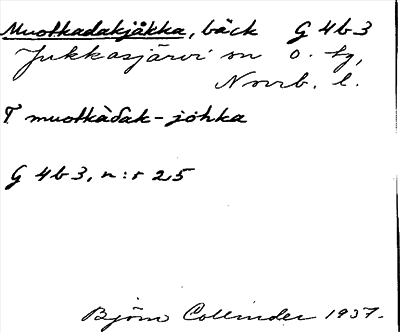 Muotkadakjåkka, bäck G 4b 3
Jukkasjärvi sn o. tg,
Norrb. l.
T muotkàđak-johka
G 4b 3, n:r 25
Björn Collinder 1937.